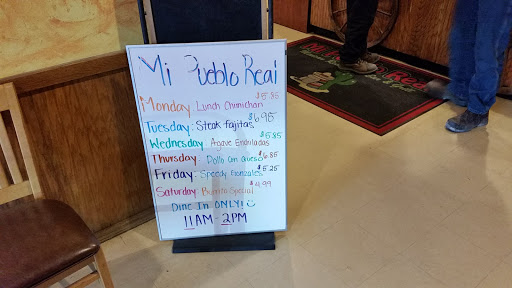 Mi Pueblo Real
Monday Lunch Chimichan $5.85
Tuesday: Steak fajitas $6.95
Wednesday: Agave Enchiladas $5.85
Thursday: Pollo con queso $6.85
Friday: Speedy Gonzales $5.25
Saturday: Burrito Special $4.99
Dine In ONLY!
11AM-2PM